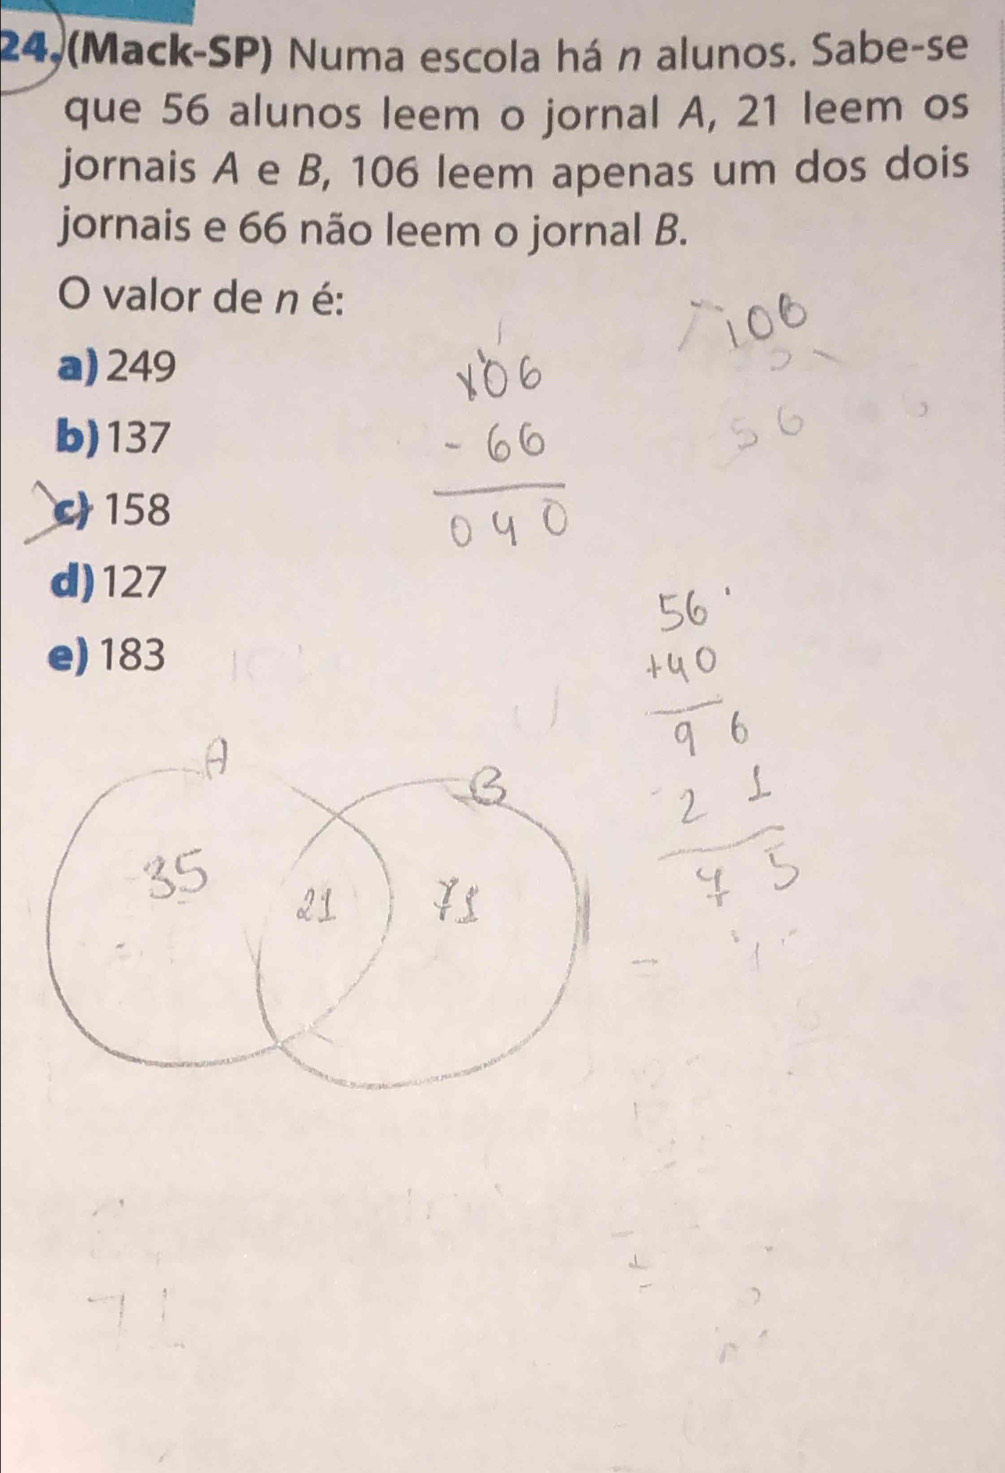 24. (Mack-SP) Numa escola há n alunos. Sabe-se
que 56 alunos leem o jornal A, 21 leem os
jornais A e B, 106 leem apenas um dos dois
jornais e 66 não leem o jornal B.
O valor de n é:
a) 249
b) 137
c) 158
d) 127
e) 183
106
- 66
040
106
56
56
+40
96
21
75
A
B
35
21
71
71